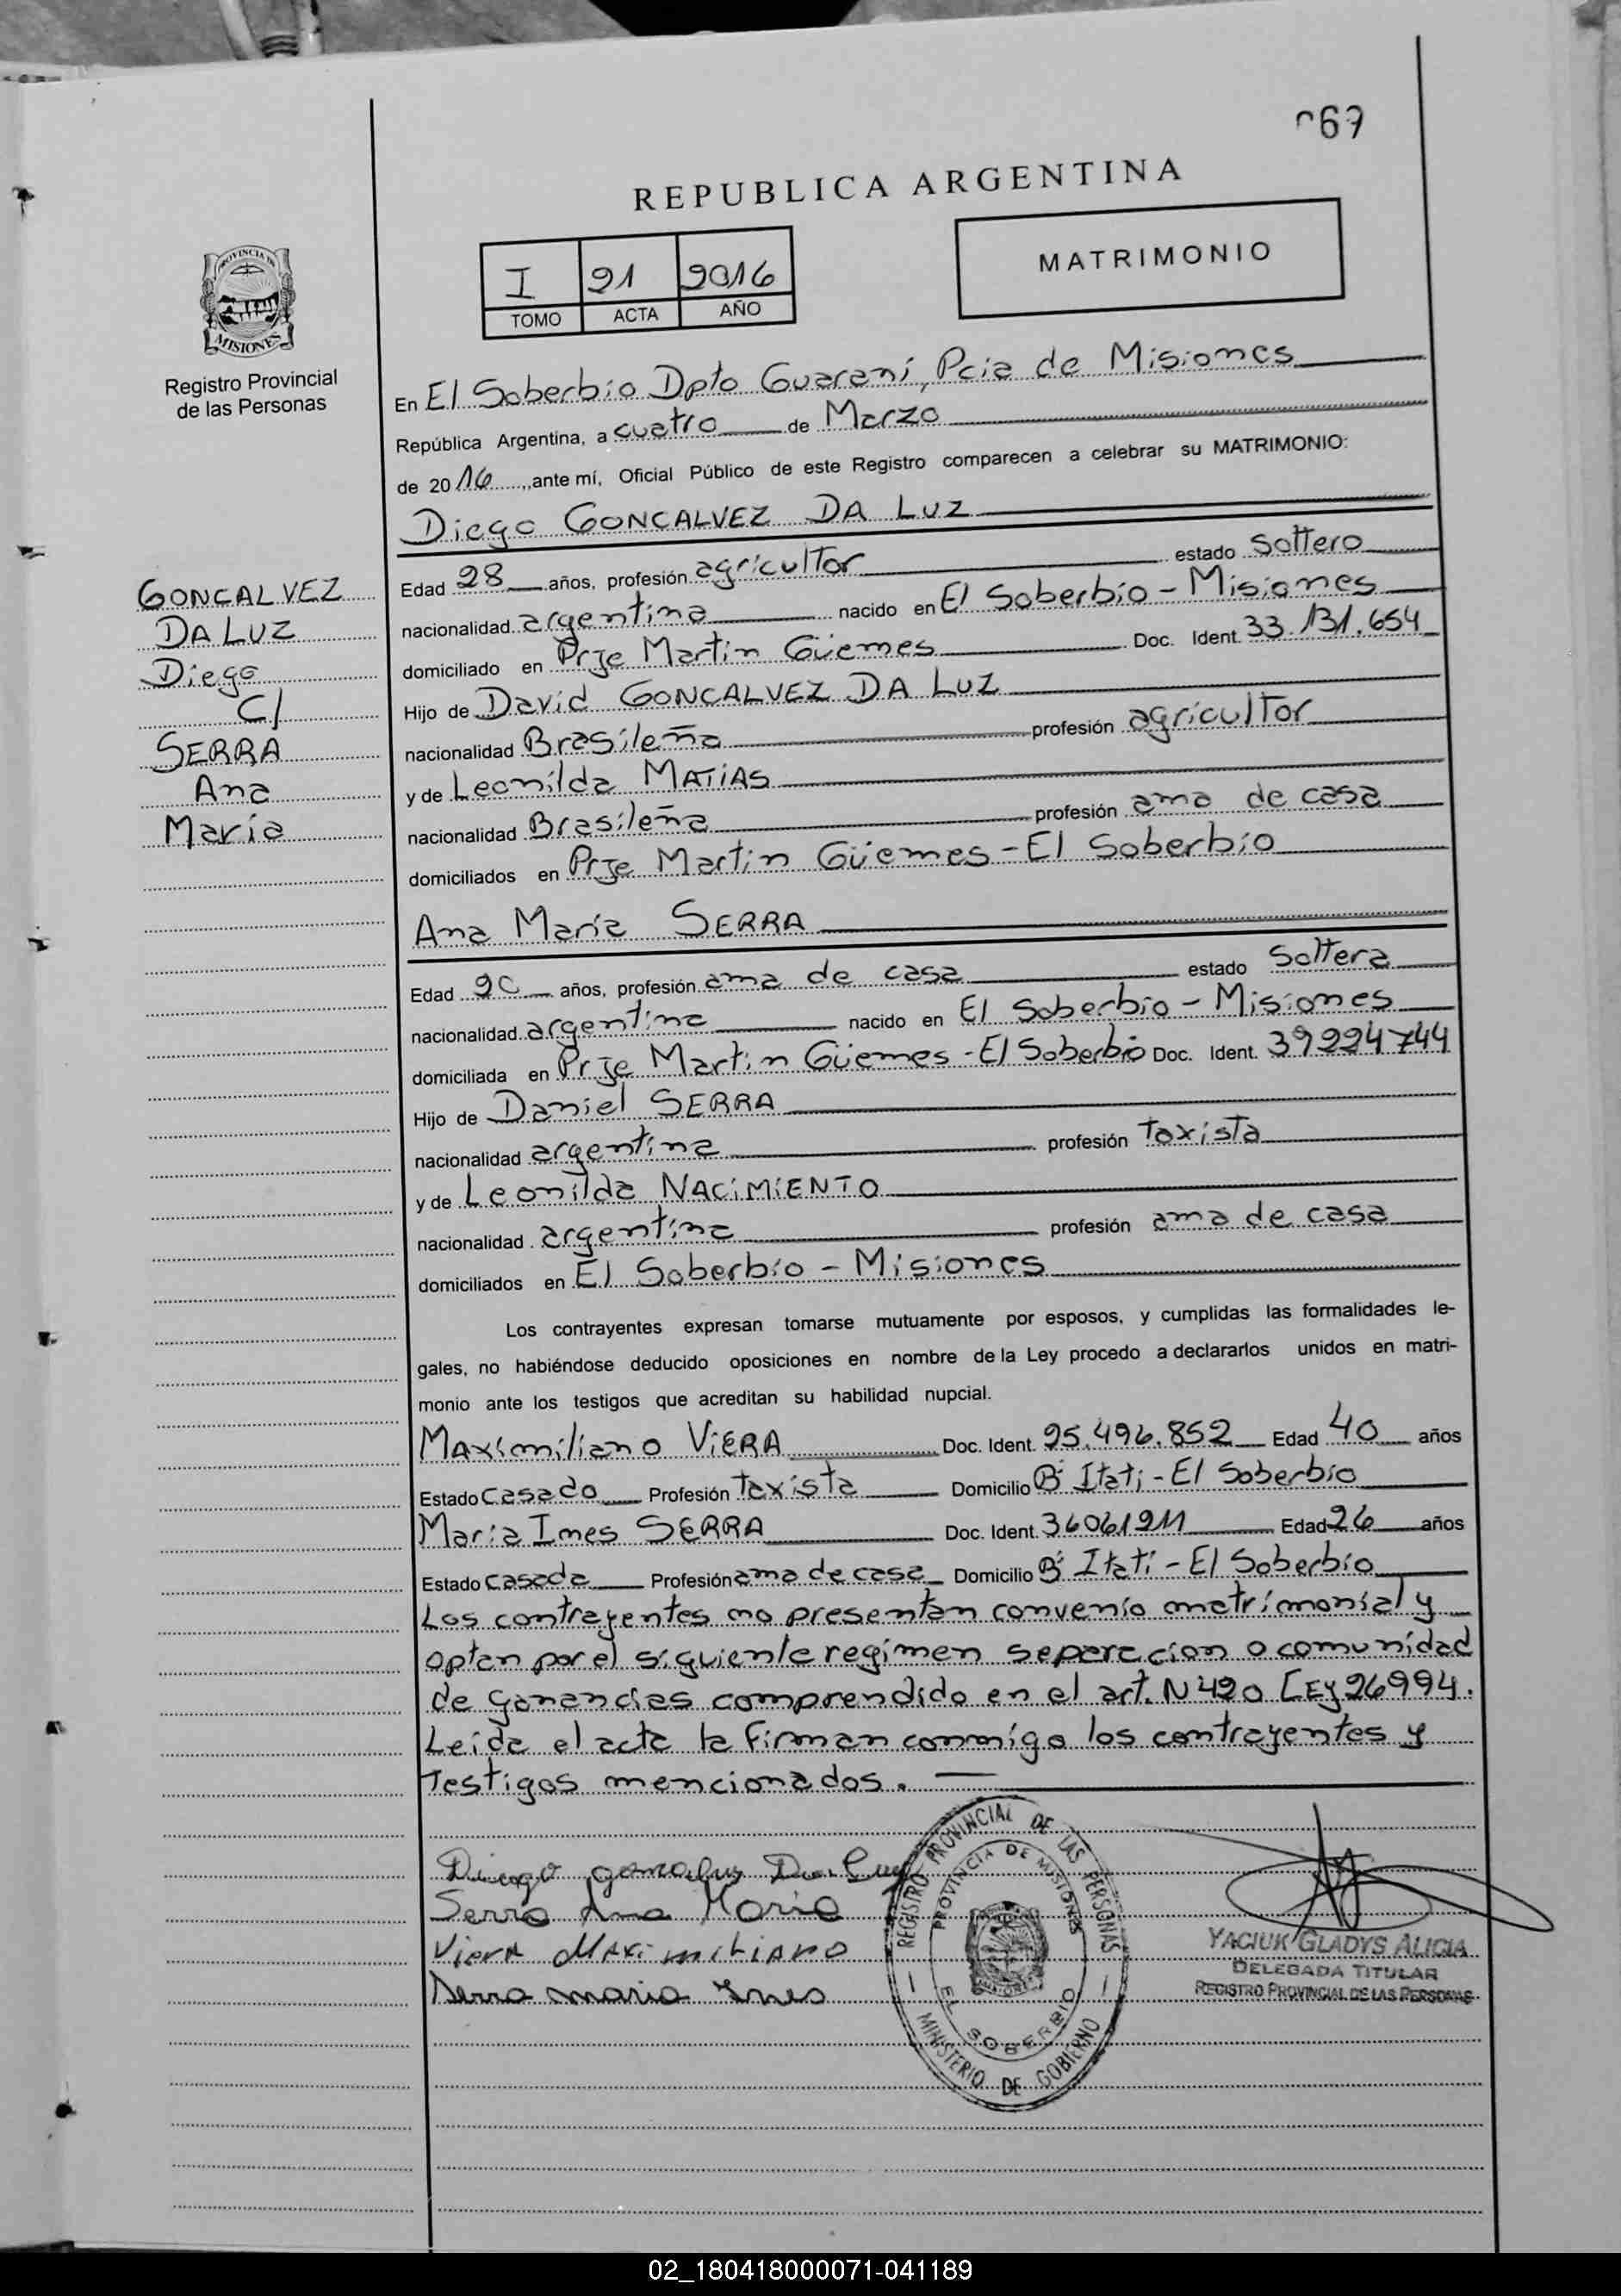 067
REPUBLICA ARGENTINA
I 21 2016
TOMO ACTA AÑO
MATRIMONIO
PROVINCIA DE
MISIONES
Registro Provincial
de las Personas
En El Soberbio Dpto Guaraní, Pcia de Misiones
República Argentina, a cuatro de Marzo
de 2016, ante mí, Oficial Público de este Registro comparecen a celebrar su MATRIMONIO:
Diego GONCALVEZ DA LUZ
GONCALVEZ
DA LUZ
Diego
C/
SERRA
Ana
María
Edad 28 años, profesión agricultor estado Soltero
nacionalidad argentina nacido en El Soberbio - Misiones
domiciliado en Prje Martin Güemes Doc. Ident. 33.131.654
Hijo de David GONCALVEZ DA LUZ
nacionalidad Brasileña profesión agricultor
y de Leonilda MATIAS
nacionalidad Brasileña profesión ama de casa
domiciliados en Prje Martin Güemes - El Soberbio
Ana María SERRA
Edad 20 años, profesión ama de casa estado Soltera
nacionalidad argentina nacido en El Soberbio - Misiones
domiciliada en Prje Martin Güemes - El Soberbio Doc. Ident. 39224744
Hijo de Daniel SERRA
nacionalidad argentina profesión Taxista
y de Leonilda NACIMIENTO
nacionalidad argentina profesión ama de casa
domiciliados en El Soberbio - Misiones
Los contrayentes expresan tomarse mutuamente por esposos, y cumplidas las formalidades le-
gales, no habiéndose deducido oposiciones en nombre de la Ley procedo a declararlos unidos en matri-
monio ante los testigos que acreditan su habilidad nupcial.
Maximiliano VIERA Doc. Ident. 25.496.852 Edad 40 años
Estado casado Profesión Taxista Domicilio Bº Itati - El Soberbio
María Ines SERRA Doc. Ident. 36061911 Edad 26 años
Estado casada Profesión ama de casa Domicilio Bº Itatí - El Soberbio
Los contrayentes no presentan convenio matrimonial y
optan por el siguiente regimen separacion o comunidad
de ganancias comprendido en el art. N 420 LEy 26994.
Leida el acta la firman conmigo los contrayentes y
Testigos mencionados.
Diego gonzalvez Da Luz
Serra Ana Maria
Viera Maximiliano
Serra maria Ines
REGISTRO PROVINCIAL DE LAS PERSONAS
PROVINCIA DE MISIONES
EL SOBERBIO
MINISTERIO DE GOBIERNO
YACIUK GLADYS ALICIA
DELEGADA TITULAR
REGISTRO PROVINCIAL DE LAS PERSONAS
02_180418000071-041189